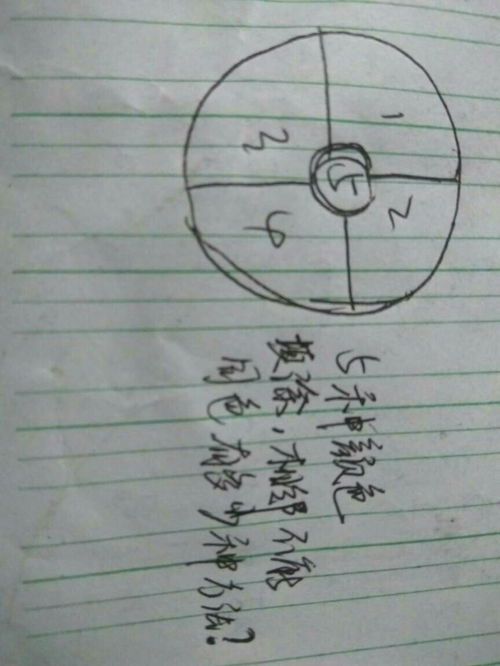 1 2
5
3 4
5种颜色
填涂，相邻不能
同色有多少种方法？